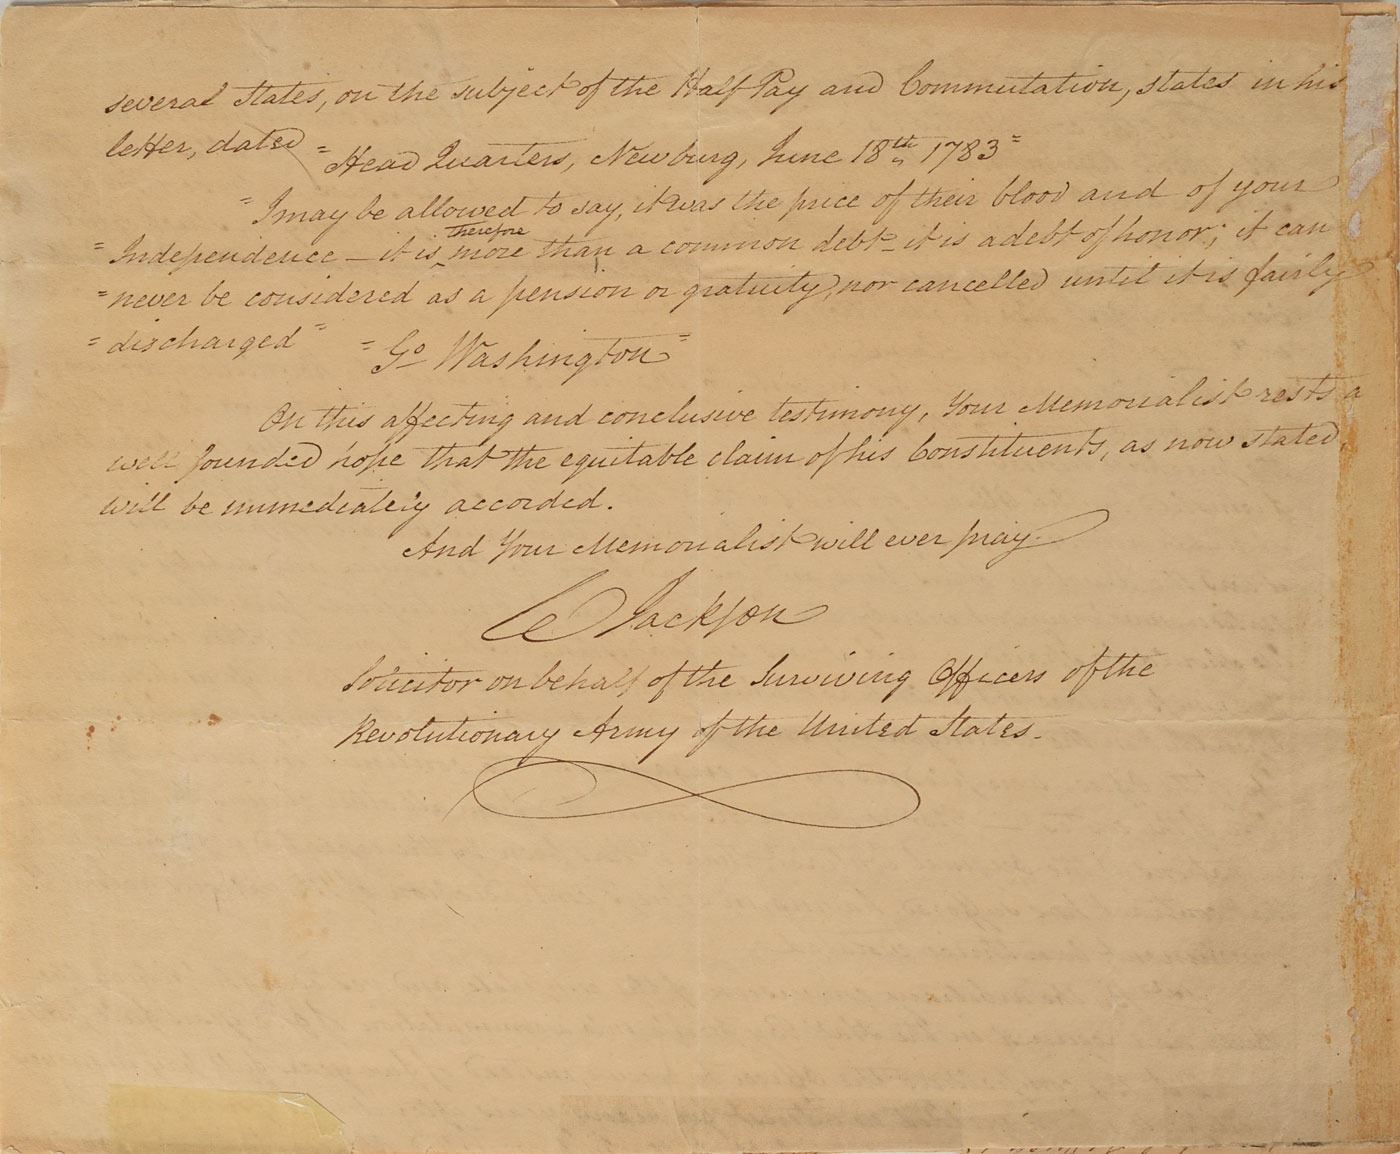 several States, on the subject of the Half Pay and Commutation, states in his
letter, dated "Head Quarters, Newburg, June 18th 1783"
"I may be allowed to say, it was the price of their blood and of your
"Independence – it is therefore more than a common debt – it is a debt of honor; it can
"never be considered as a pension or gratuity, nor cancelled until it is fairly
"discharged" "Go Washington"
On this affecting and conclusive testimony, Your Memorialist rests a
well founded hope that the equitable claim of his Constituents, as now stated,
will be immediately accorded.
And Your Memorialist will ever pray.
Jackson
Solicitor on behalf of the Surviving Officers of the
Revolutionary Army of the United States.